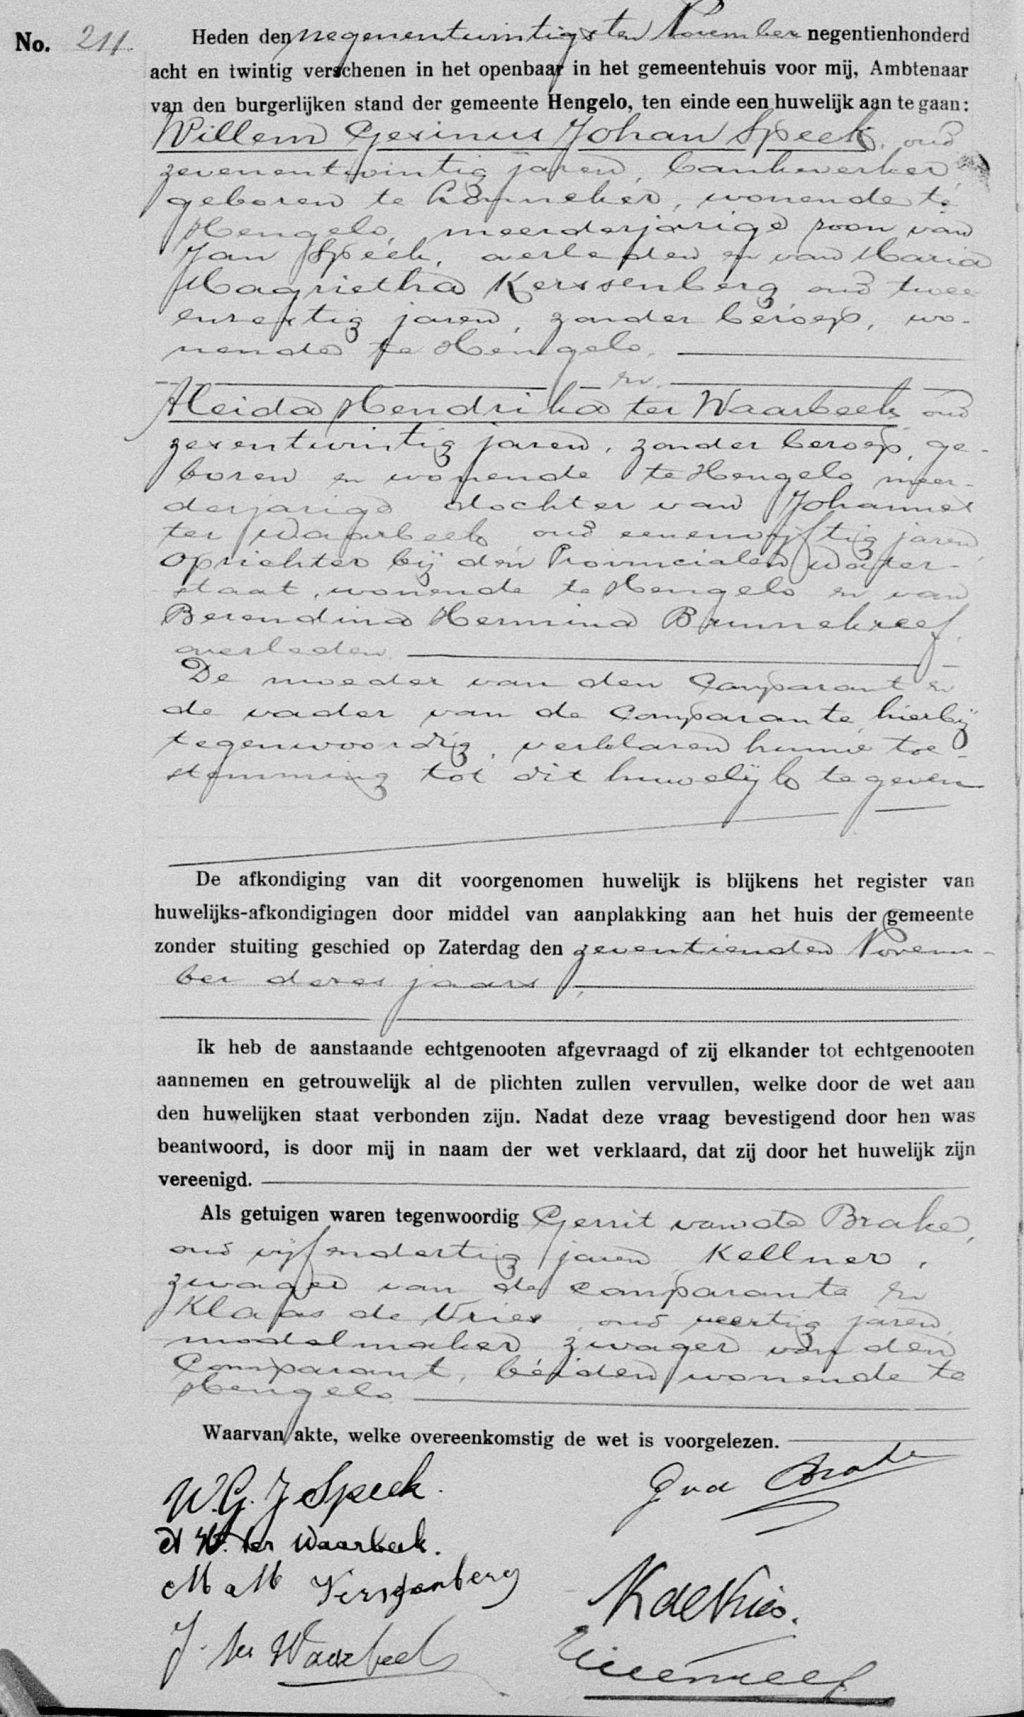 No. 211.
Heden den negenentwintigsten November negentienhonderd
acht en twintig verschenen in het openbaar in het gemeentehuis voor mij, Ambtenaar
van den burgerlijken stand der gemeente Hengelo, ten einde een huwelijk aan te gaan:
Willem Gesinus Johan Speek, oud
zevenentwintig jaren, bankwerker,
geboren te Lonneker, wonende te
Hengelo, meerderjarige zoon van
Jan Speek, overleden en van Maria
Magrietha Kerssenberg oud twee
enzestig jaren, zonder beroep, wo-
nende te Hengelo.
en
Aleida Hendrika ter Waarbeek oud
zesentwintig jaren, zonder beroep, ge-
boren en wonende te Hengelo meer-
derjarige dochter van Johannes
ter Waarbeek, oud eenenvijftig jaren,
oprichter bij den Provincialen Water-
staat, wonende te Hengelo en van
Berendina Hermina Brunnekreef,
overleden.
De moeder van den Comparant en
de vader van de Comparante, hierbij
tegenwoordig, verklaren hunne toe
stemming tot dit huwelijk te geven
De afkondiging van dit voorgenomen huwelijk is blijkens het register van
huwelijks-afkondigingen door middel van aanplakking aan het huis der gemeente
zonder stuiting geschied op Zaterdag den zeventienden Novem-
ber dezes jaars.
Ik heb de aanstaande echtgenooten afgevraagd of zij elkander tot echtgenooten
aannemen en getrouwelijk al de plichten zullen vervullen, welke door de wet aan
den huwelijken staat verbonden zijn. Nadat deze vraag bevestigend door hen was
beantwoord, is door mij in naam der wet verklaard, dat zij door het huwelijk zijn
vereenigd.
Als getuigen waren tegenwoordig Gerrit van de Brake,
oud vijfendertig jaren Kellner,
zwager van de comparante en
Klaas de Vries, oud veertig jaren,
modelmaker zwager van den
Comparant, beiden wonende te
Hengelo
Waarvan akte, welke overeenkomstig de wet is voorgelezen.
W.G.J Speek.
G v d Brake
A H. ter Waarbeek.
M M Kerssenberg
K de Vries.
J. ter Waarbeek